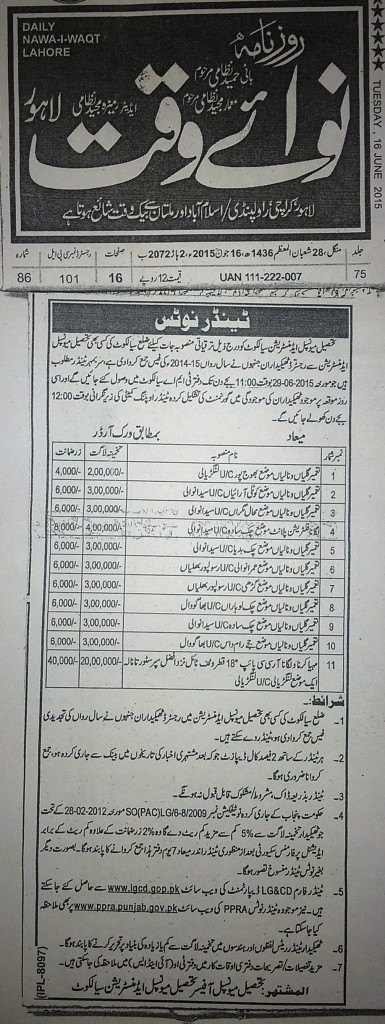 DAILY
NAWA-I-WAQT
LAHORE
روزنامہ
بانی حمید نظامی مرحوم
معمار مجید نظامی مرحوم
ایڈیٹر رمیزہ مجید نظامی
نوائے وقت
لاہور
لاہور، کراچی، راولپنڈی/ اسلام آباد اور ملتان سے بیک وقت شائع ہوتا ہے
TUESDAY, 16 JUNE 2015
جلد 75
منگل، 28 شعبان المعظم 1436ھ، 16 جون 2015ء، 2 ہاڑ 2072 ب
UAN 111-222-007
قیمت 12 روپے
صفحات 16
رجسٹرڈ نمبر سی پی ایل 101
شمارہ 86
ٹینڈر نوٹس
تحصیل میونسپل ایڈمنسٹریشن سیالکوٹ کو درج ذیل ترقیاتی منصوبہ جات کیلئے ضلع سیالکوٹ کی کسی بھی تحصیل میونسپل
ایڈمنسٹریشن سے رجسٹرڈ ٹھیکیداران جنہوں نے سال رواں 2014-15 کی فیس جمع کروا دی ہے، سر بمہر ٹینڈر مطلوب
ہیں جو مورخہ 29-06-2015 بوقت 11:00 بجے دن تک دفتر ٹی ایم اے سیالکوٹ میں وصول کئے جائیں گے اور اسی
روز موقعہ پر موجود ٹھیکیداران کی موجودگی میں گورنمنٹ کی تشکیل کردہ ٹینڈر اوپننگ کمیٹی کی زیر نگرانی بوقت 12:00
بجے دن کھولے جائیں گے۔
میعاد بمطابق ورک آرڈر
نمبر شمار نام منصوبہ تخمینہ لاگت زر ضمانت
1 تعمیر گلیاں و نالیاں موضع بھوج پور U/C لنگڑیالی 2,00,000/- 4,000/-
2 تعمیر گلیاں و نالیاں موضع کوٹلی آرائیاں U/C سیدانوالی 3,00,000/- 6,000/-
3 تعمیر گلیاں و نالیاں موضع U/C سیدانوالی 3,00,000/- 6,000/-
4 لگانا فلٹریشن پلانٹ موضع چک سادہ U/C سیدانوالی 4,00,000/- 8,000/-
5 تعمیر گلیاں و نالیاں موضع چک U/C سیدانوالی 3,00,000/- 6,000/-
6 تعمیر گلیاں و نالیاں موضع عمرانوالی U/C رسولپور بھلیاں 3,00,000/- 6,000/-
7 تعمیر گلیاں و نالیاں موضع گڑھی U/C رسولپور بھلیاں 3,00,000/- 6,000/-
8 تعمیر گلیاں و نالیاں موضع چک لوہاراں U/C بھاگووال 3,00,000/- 6,000/-
9 تعمیر گلیاں و نالیاں موضع چک سادہ U/C سیدانوالی 3,00,000/- 6,000/-
10 تعمیر گلیاں و نالیاں موضع ججے رام داس U/C بھاگووال 3,00,000/- 6,000/-
11 مہیا کرنا و لگانا آر سی سی پائپ "18 قطر و ف ٹائل نزد افضل سپر سٹور تا نالہ 20,00,000/- 40,000/-
ایک موضع لنگڑیالی U/C لنگڑیالی
شرائط:۔
1۔ ضلع سیالکوٹ کی کسی بھی تحصیل میونسپل ایڈمنسٹریشن میں رجسٹرڈ ٹھیکیداران جنہوں نے سال رواں کی تجدیدی
فیس جمع کروا دی ہو، ٹینڈر دے سکتے ہیں۔
2۔ ہر ٹینڈر کے ساتھ 2 فیصد کال ڈیپازٹ جو کہ بعد از مشتہری اخبار کی تاریخوں میں بینک سے جاری کردہ ہو، جمع
کروانا ضروری ہوگا۔
3۔ ٹینڈر بذریعہ ڈاک، مشروط/ مشکوک قابل قبول نہ ہونگے۔
4۔ حکومت پنجاب کے جاری کردہ نوٹیفکیشن نمبر SO(PAC)LG/6-8/2009 مورخہ 28-02-2012 کے تحت
جو ٹھیکیدار تخمینہ لاگت سے 5% کم سے مزید کم ریٹ دے گا وہ 2% زر ضمانت کے علاوہ کم ریٹ کے برابر
ایڈیشنل پرفارمنس سکیورٹی بعد از منظوری ٹینڈر اندر میعاد 7 یوم دفتر ہذا جمع کروانے کا پابند ہوگا۔ بصورت دیگر
بغیر نوٹس ٹینڈر منسوخ تصور ہوگا۔
5۔ ٹینڈر فارم LG&CD ڈیپارٹمنٹ کی ویب سائٹ www.lgcd.gop.pk سے حاصل کئے جا سکتے
ہیں۔ نیز موجودہ ٹینڈر نوٹس PPRA کی ویب سائٹ www.ppra.punjab.gov.pk پر بھی ملاحظہ
کیا جا سکتا ہے۔
6۔ ٹھیکیدار ٹینڈر ریٹ لفظوں اور ہندسوں میں تخمینہ لاگت سے کم یا زیادہ کی بنیاد پر تحریر کرنے کا پابند ہوگا۔
7۔ مزید تفصیلات/ تصریحات دفتری اوقات کار میں دفتر ٹی او (آئی اینڈ ایس) میں ملاحظہ کی جا سکتی ہیں۔
المشتہر: تحصیل میونسپل آفیسر تحصیل میونسپل ایڈمنسٹریشن سیالکوٹ
(IPL-8097)